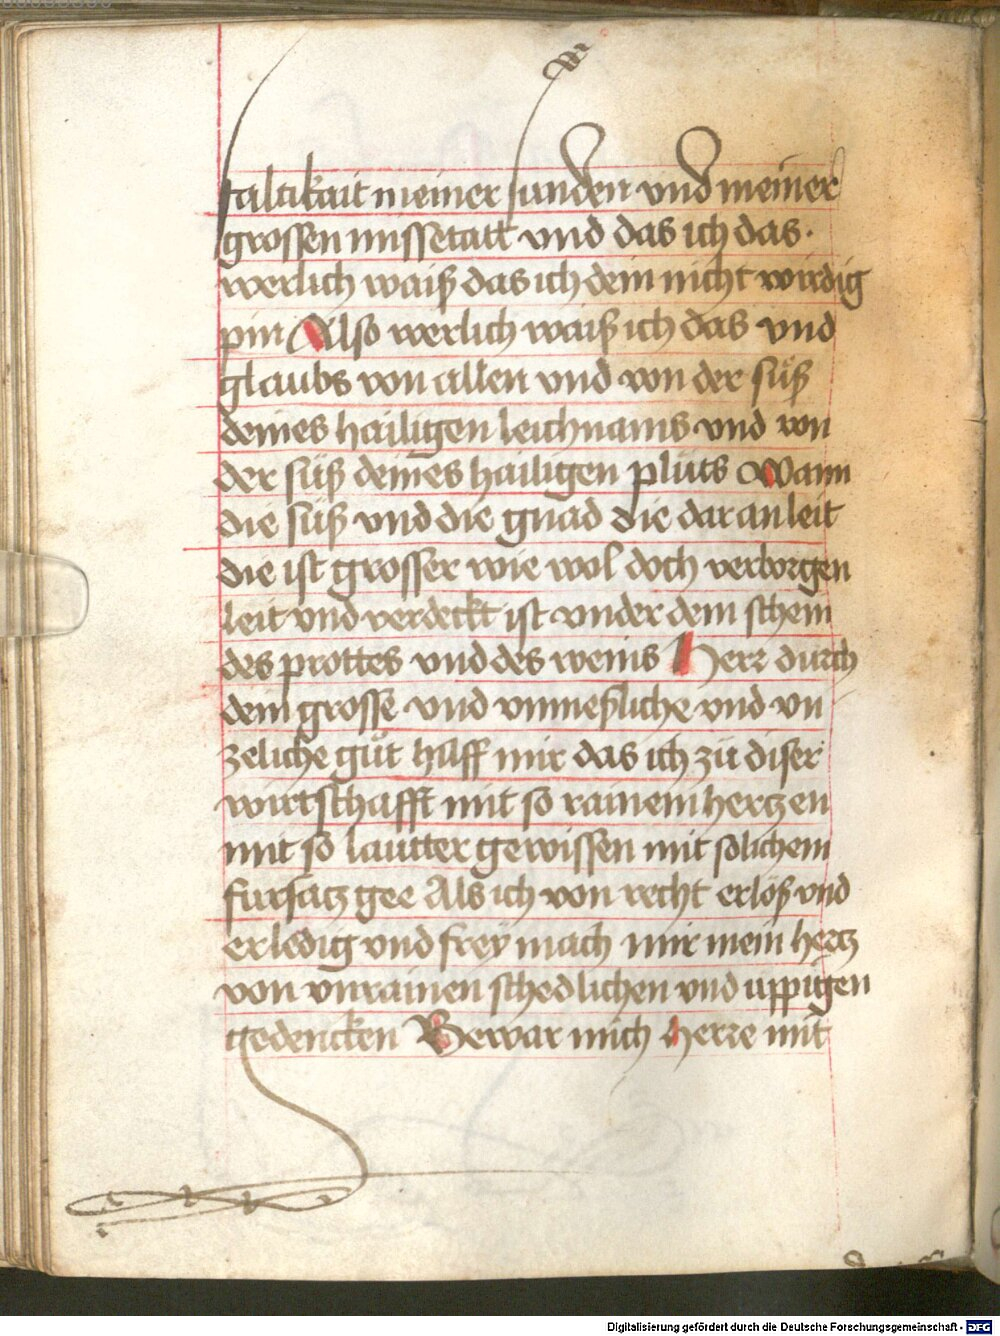 faltikait meiner sunden vnd meiner
grossen missetatt vnd das ich das ·
werlich waiß das ich dein nicht wirdig
pin Also werlich waiß ich das vnd
glaubs von allen vnd von der süß
deines hailigen leichnams vnd von
der süß deines hailigen plüts Wann
die süß vnd die gnad die dar an leit
die ist grosser wie wol doch verborgen
leit vnd verdeckt ist vnder dem schein
des prottes vnd des weins Herr durch
dein grosse vnd vnmeßliche vnd vn
zeliche güt hilff mir das ich zü diser
wirtschafft mit so rainem hertzen
mit so lautter gewissen mit solichem
fursatz gee Als ich von recht erlöß vnd
erledig vnd frey mach mir mein hertz
von vnrainen schedlichen vnd uppigen
gedencken Bewar mich herre mit
Digitalisierung gefördert durch die Deutsche Forschungsgemeinschaft - DFG